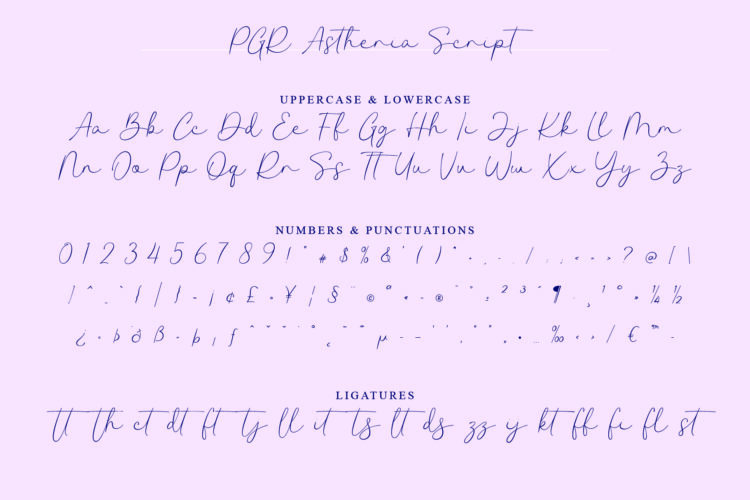 PGR Asthenia Script
UPPERCASE & LOWERCASE
Aa Bb Cc Dd Ee Ff Gg Hh Ii Jj Kk Ll Mm
Nn Oo Pp Qq Rr Ss Tt Uu Vv Ww Xx Yy Zz
NUMBERS & PUNCTUATIONS
0 1 2 3 4 5 6 7 8 9 ! " # $ % & ' ( ) * + , - . / : ; < = > ? @ [ \
] ^ _ ` { / } - ¡ ¢ £ ¤ ¥ ¦ § ¨ © ª « - ® ¯ ° ± ² ³ ´ ¶ · ¸ ¹ º » ¼ ½
¿ × Þ ð ß ÷ þ ı ƒ ˆ ˇ ˘ ˙ ˚ ˛ ˜ ˝ µ – — ‘ ’ ‚ “ ” „ • … ‰ ‹ › / € ™ −
LIGATURES
tt th ct dt ft ty ll it ts lt ds zz y kt ff fi fl st